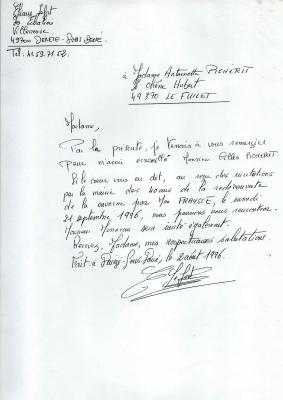 49700 DENEZE-SOUS-DOUÉ
Tel: 41.59.71.52.
à Madame Antoinette PICHERIT
Le Chêne Hubert
49270 LE FUILET
Madame,
Par la présente, je tenais à vous remercier
pour m'avoir conseillé Monsieur Gilles PICHERIT.
Si le cœur vous en dit, au vu des invitations
par la mairie des 20 ans de la redécouverte
de la caverne par Mme FRAYSSE, le samedi
21 septembre 1996, nous pouvons nous rencontrer.
Monsieur sera invité également.
Recevez, Madame, mes respectueuses salutations.
Fait à Denezé-Sous-Doué, le 2 août 1996.